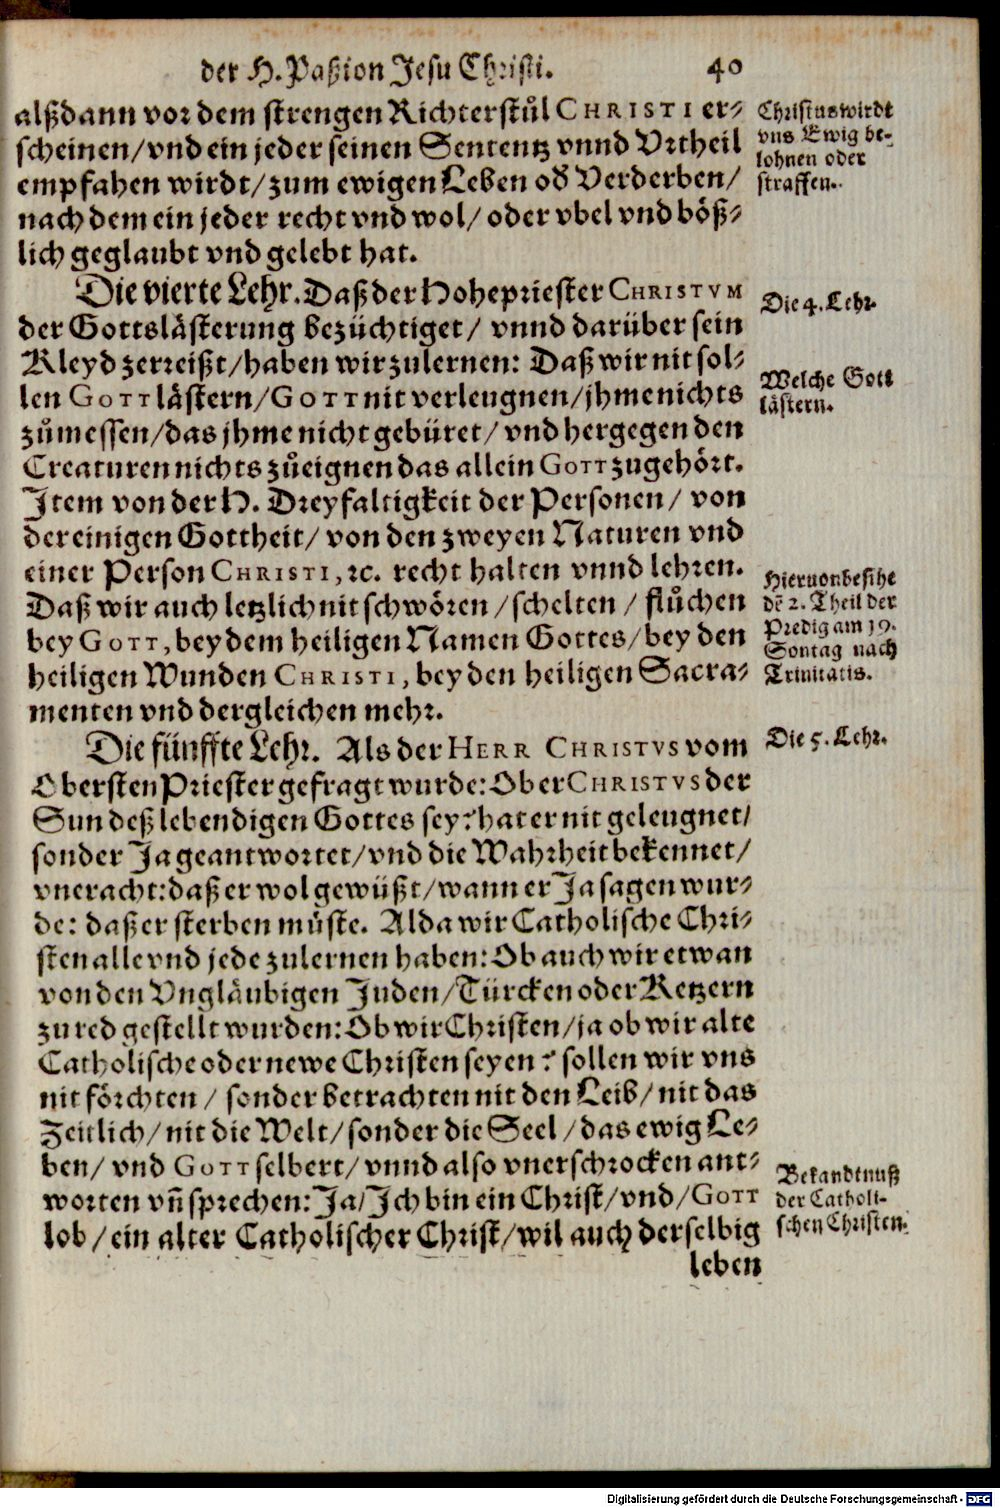 der H. Paßion Jesu Christi. 40
alßdann vor dem strengen Richterstůl CHRISTI er-
scheinen/ vnd ein jeder seinen Sententz vnnd Vrtheil
empfahen wirdt/ zum ewigen Leben od' Verderben/
nach dem ein jeder recht vnd wol/ oder vbel vnd böß-
lich geglaubt vnd gelebt hat.
Christus wirdt
vns Ewig be-
lohnen oder
straffen.
Die vierte Lehr. Daß der Hohepriester CHRISTVM
der Gottslästerung bezüchtiget/ vnnd darüber sein
Kleyd zerreißt/ haben wir zulernen: Daß wir nit sol-
len GOTT lästern/ GOTT nit verleugnen/ jhme nichts
zůmessen/ das jhme nicht gebüret/ vnd hergegen den
Creaturen nichts zůeignen das allein GOTT zugehört.
Item von der H. Dreyfaltigkeit der Personen/ von
der einigen Gottheit/ von den zweyen Naturen vnd
einer Person CHRISTI, ꝛc. recht halten vnnd lehren.
Daß wir auch letzlich nit schwören/ schelten/ flůchen
bey GOTT, bey dem heiligen Namen Gottes/ bey den
heiligen Wunden CHRISTI, bey den heiligen Sacra-
menten vnd dergleichen mehr.
Die 4. Lehr.
Welche Gott
lästern.
Hieruon besihe
dē 2. Theil der
Predig am 19.
Sontag nach
Trinitatis.
Die fünffte Lehr. Als der HERR CHRISTVS vom
Obersten Priester gefragt wurde: Ob er CHRISTVS der
Sun deß lebendigen Gottes sey? hat er nit geleugnet/
sonder Ja geantwortet/ vnd die Wahrheit bekennet/
vneracht: daß er wol gewüßt/ wann er Ja sagen wur-
de: daß er sterben müste. Alda wir Catholische Chri-
sten alle vnd jede zulernen haben: Ob auch wir etwan
von den Vngläubigen Juden/ Türcken oder Ketzern
zu red gestellt wurden: Ob wir Christen/ ja ob wir alte
Catholische oder newe Christen seyen? sollen wir vns
nit förchten/ sonder betrachten nit den Leib/ nit das
Zeitlich/ nit die Welt/ sonder die Seel/ das ewig Le-
ben/ vnd GOTT selbert/ vnnd also vnerschrocken ant-
worten vn̄ sprechen: Ja/ Ich bin ein Christ/ vnd/ GOTT
lob/ ein alter Catholischer Christ/ wil auch derselbig
leben
Die 5. Lehr.
Bekandtnuß
der Catholi-
schen Christen.
Digitalisierung gefördert durch die Deutsche Forschungsgemeinschaft - DFG